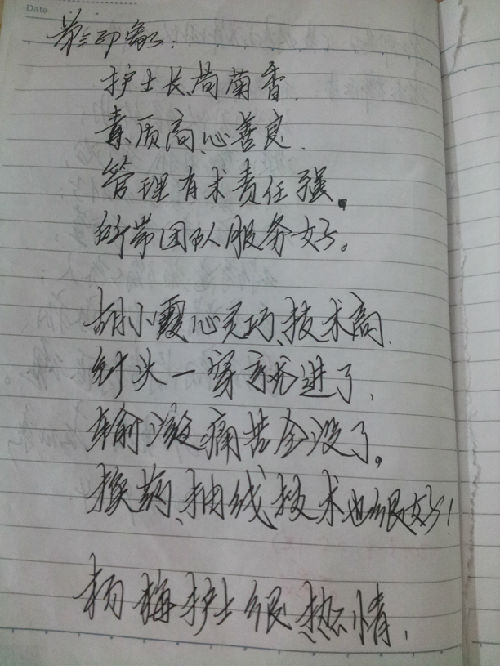 Date
第三印象:
护士长尚菊香
素质高,心善良.
管理有术责任强。
所带团队服务好。
胡小霞心灵巧、技术高.
针头一穿就进了,
输液痛苦全没了。
换药、抽线技术也很好!
杨梅护士很热情,